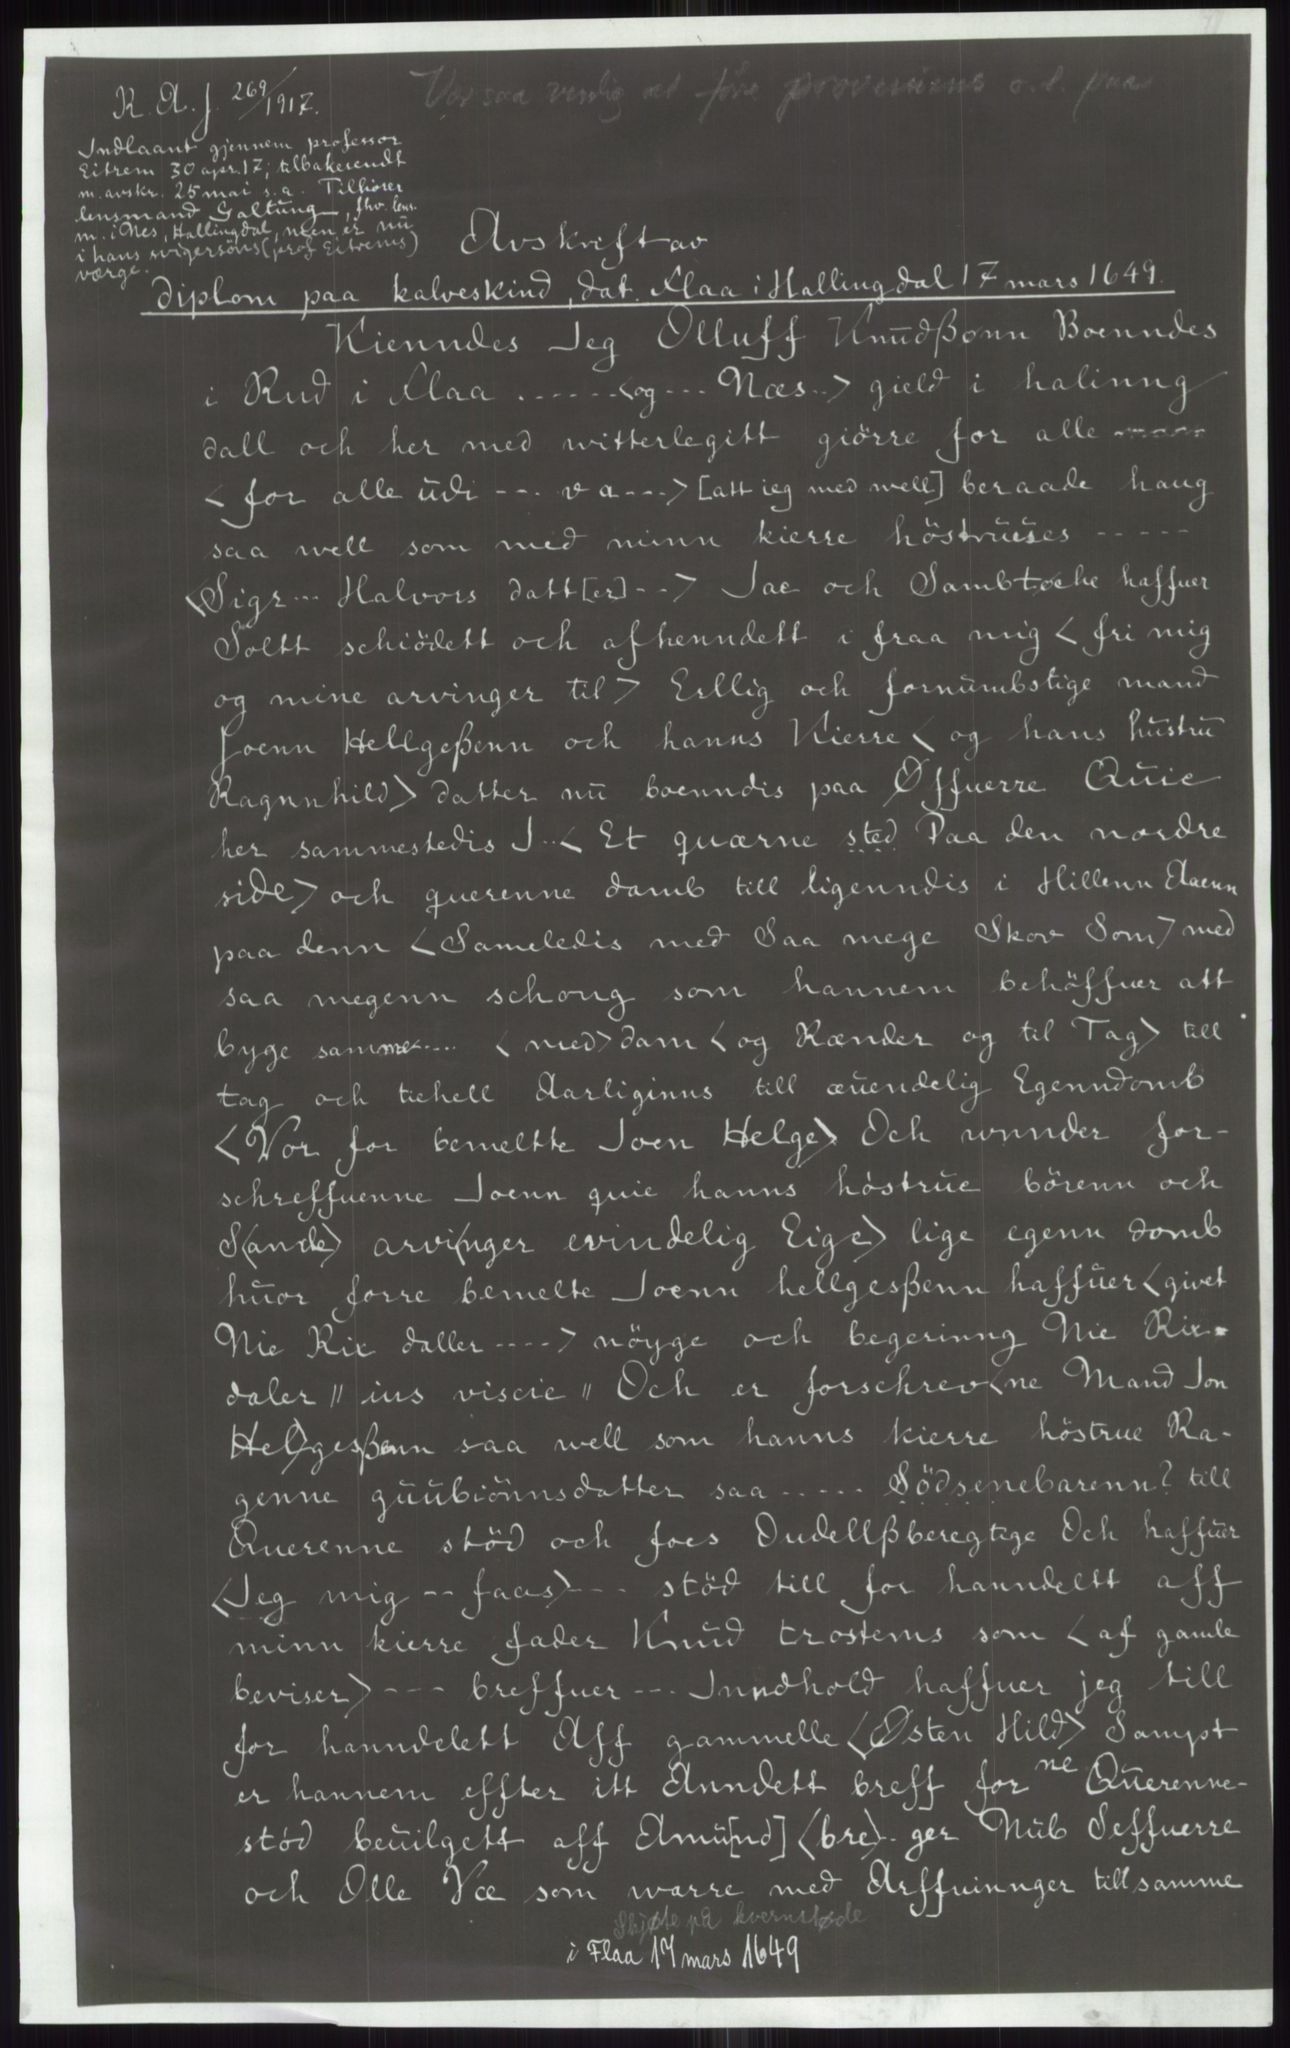 Vær saa venlig at føre proveniens o.l. paa
R. A. J. 269/1917.
Indlaant gjennem professor
Eitrem 30 apr. 17; tilbakesendt
m. avskr. 25 mai s.a. Tilhører
lensmand Galtung, fhv. lens-
m. i Nes, Hallingdal, men er nu
i hans svigersøns (prof Eitrems)
værge.
Avskrift av
diplom paa kalveskind, dat. Flaa i Hallingdal 17 mars 1649.
Kienndes Jeg Olluff Knudßonn Boenndes
i Rud i Flaa ......<og --- Næs..> gield i halinng
dall och her med witterlegitt giörre for alle
< for alle udi --- v a ---> [att ieg med well] beraade haug
saa well som med minn kierre höstruues -----
<Sigr... Halvors datt[er] --> Jae och Sambtöche haffuer
Soltt schiödett och afhenndett i fraa mig < fri mig
og mine arvinger til > Erllig och fornumbstige mand
Joenn Hellgeßenn och hanns Kierre < og hans hustru
Ragnnhild> datter nu boenndis paa Øffuerre Quie
her sammestedis J..< Et quærne sted Paa den nordre
side> och querenne damb till ligenndis i Hillenn Aaenn
paa denn <Sameledis med Saa mege Skov Som> med
saa megenn schong som hannem behöffuer att
byge samme.... < med> dam < og Rænder og til Tag> till
tag och tiehell Aarliginns till æuendelig Egenndomb
<Vor for bemeltte Joen Helge> Och wnnder for-
schreffuenne Joenn quie hanns höstrue börenn och
S(ande> arvi<nger evindelig Eige> lige egenn domb
huor forre bemelte Joenn hellgesßenn haffuer <givet
Nie Rix daller ----> nöyge och begerinng Nie Rix-
daler // ius viscie // Och er forschrev<ne Mand Jon
Hel>gesßenn saa well som hanns kierre höstrue Ra-
genne guubiönnsdatter saa ..... Södsenebarenn? till
Querenne stöd och foes Oudellßberegtige Och haffuer
<Jeg mig -- faas> --- stöd till for hanndeltt aff
minn kierre fader Knud trostems som < af gamle
beviser> --- breffuer --- Inndhold haffuer jeg till
for hanndelett Aff gammelle <Østen Hild> Sampt
er hannem effter itt Anndett breff for ne Querenne-
stöd beuilgett aff Amu[nd] <bre>.. ger Nub Seffuerre
och Olle Væ som warre med Arffuinnger till samme
Skjøte på kvernstøde
i Flaa 17 mars 1649